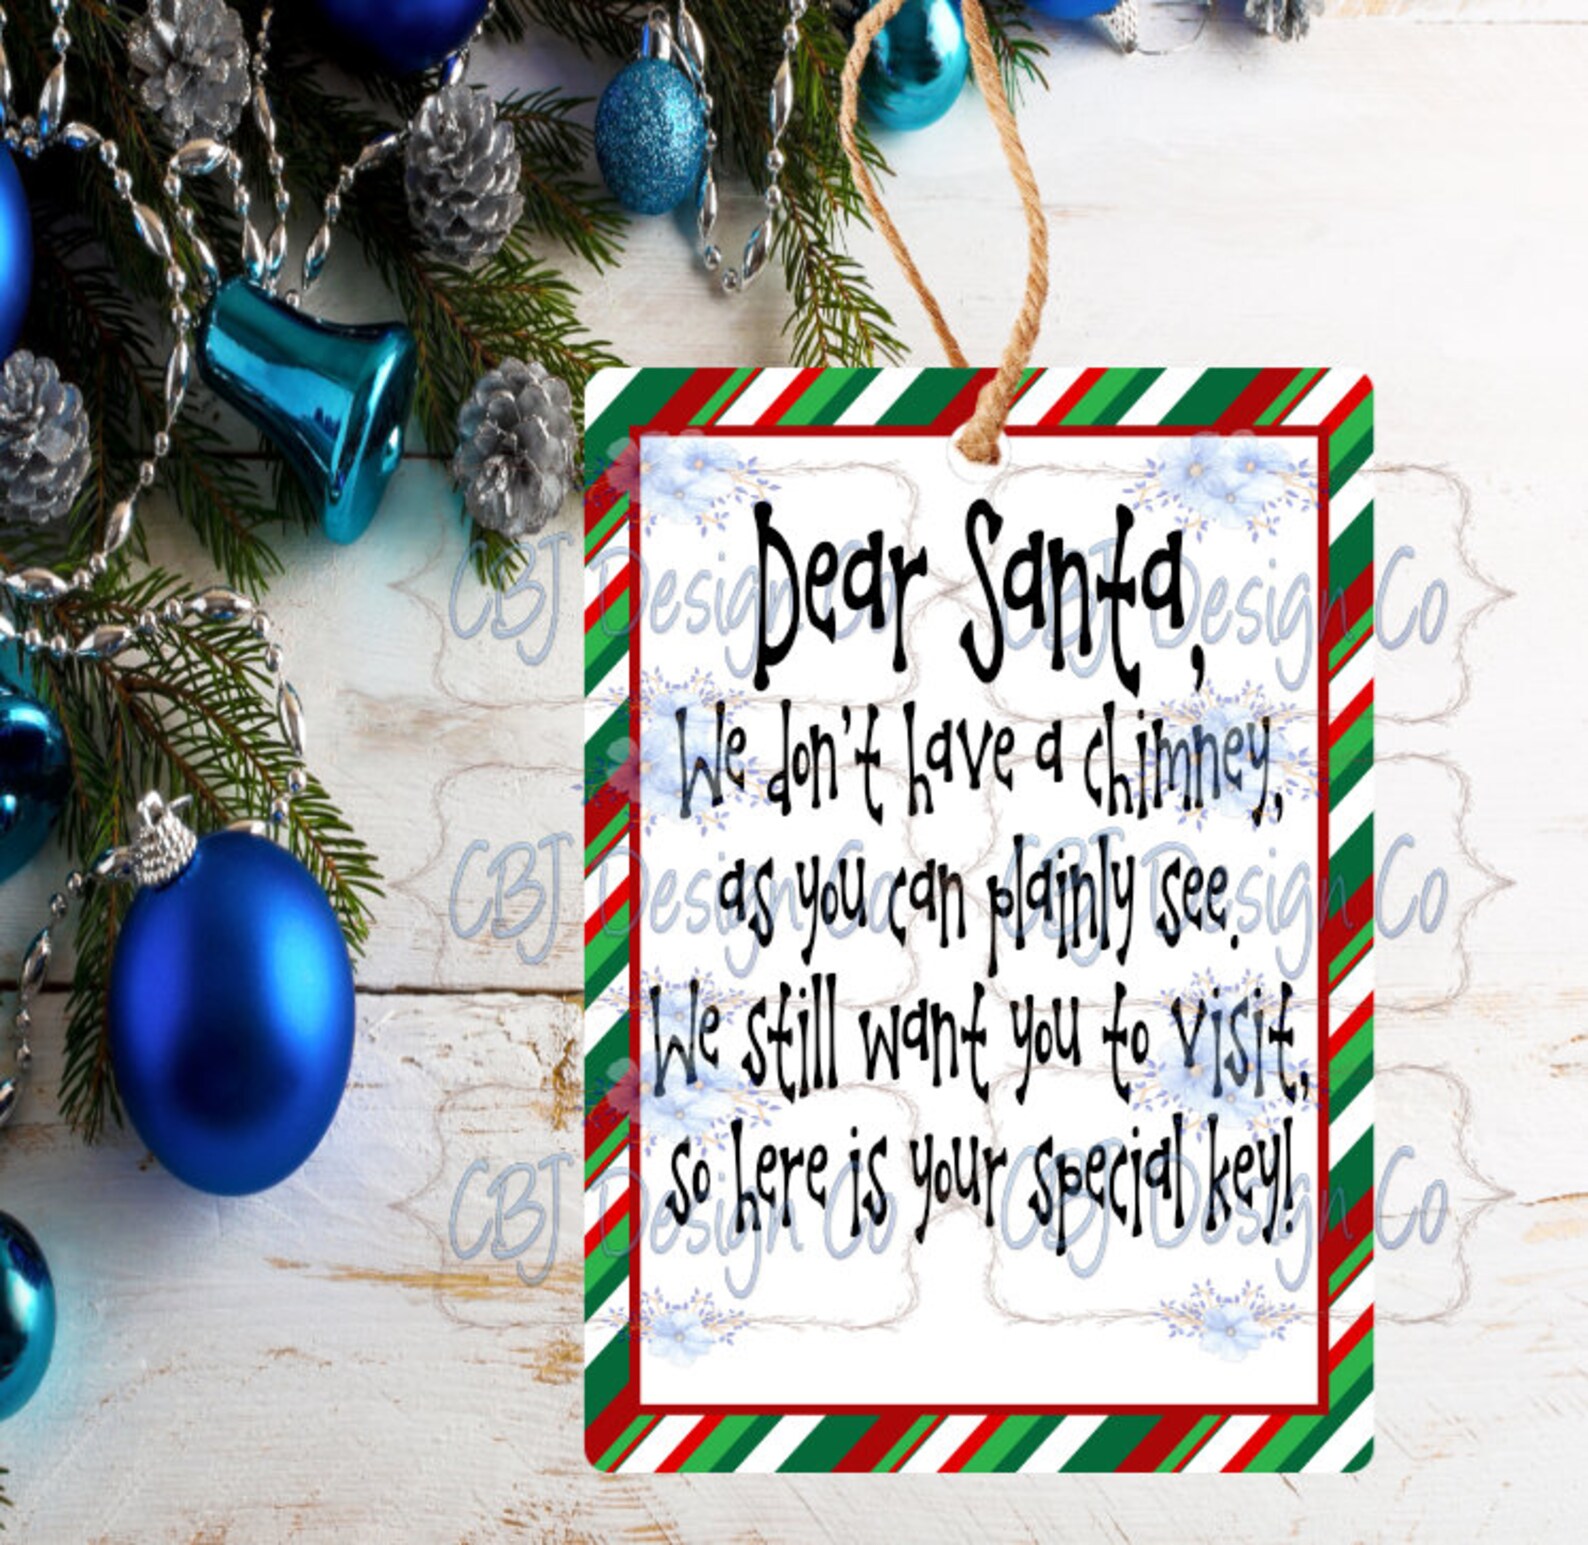 Dear Santa,
We don't have a chimney,
as you can plainly see.
We still want you to visit,
so here is your special key!
CBJ Design Co CBJ Design Co
CBJ Design Co CBJ Design Co
CBJ Design Co CBJ Design Co